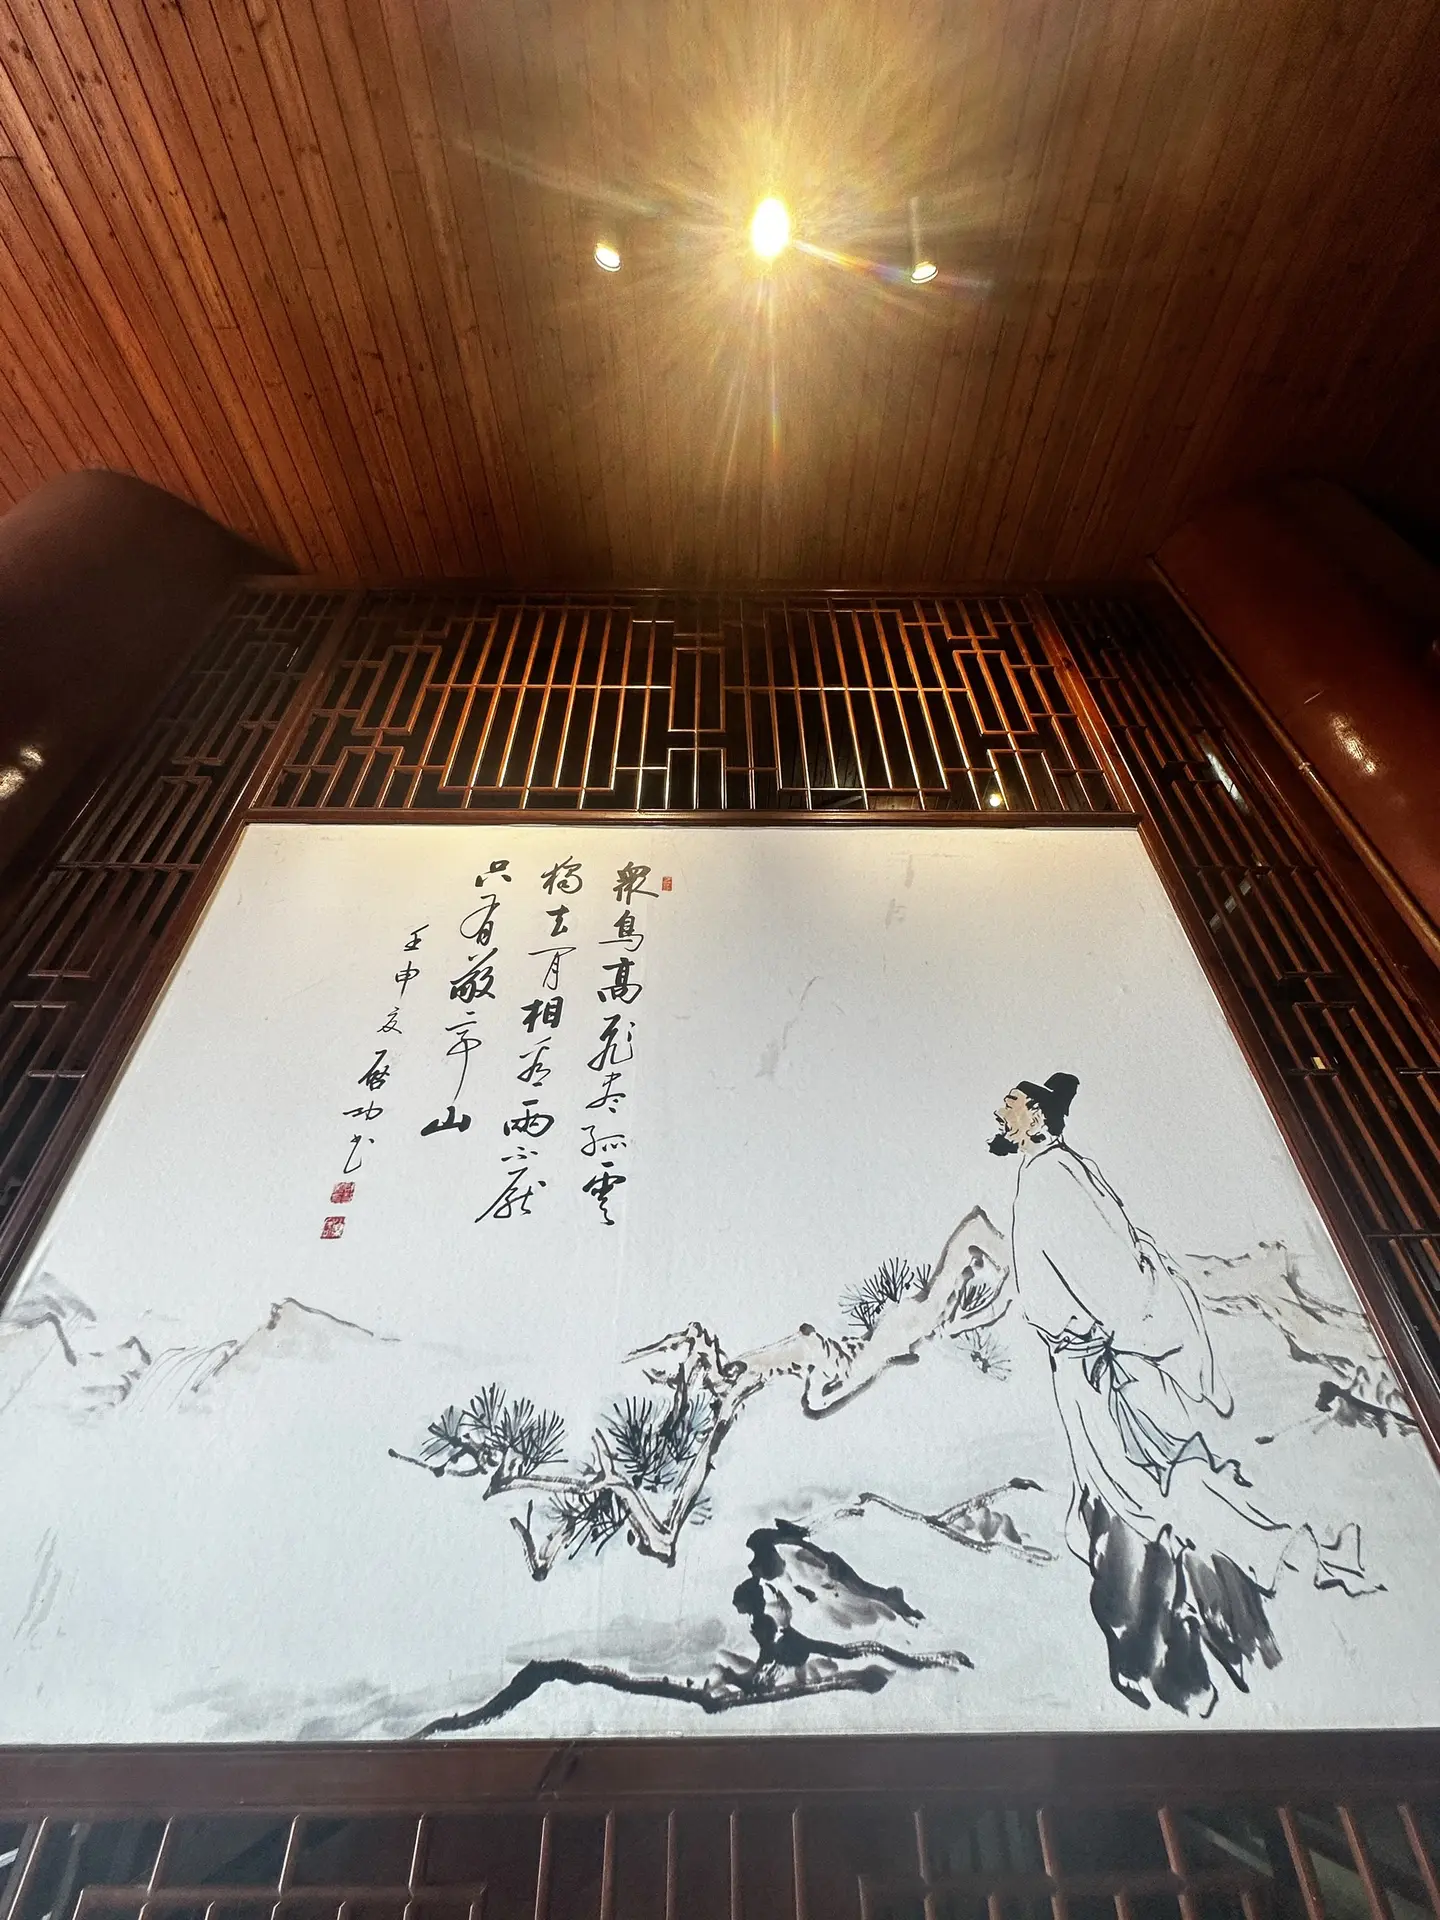 衆鳥高飛盡孤雲
獨去閒相看兩不厭
只有敬亭山
壬申夏啓功書